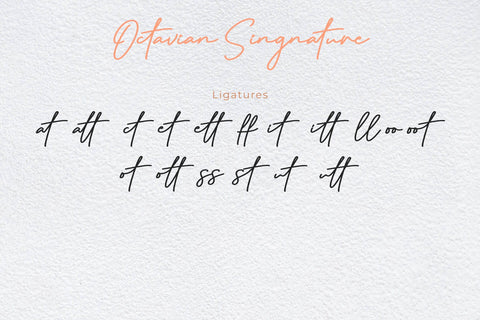 Octavian Singnature
Ligatures
at att ct et ett ff it itt ll oo oot
ot ott ss st ut utt